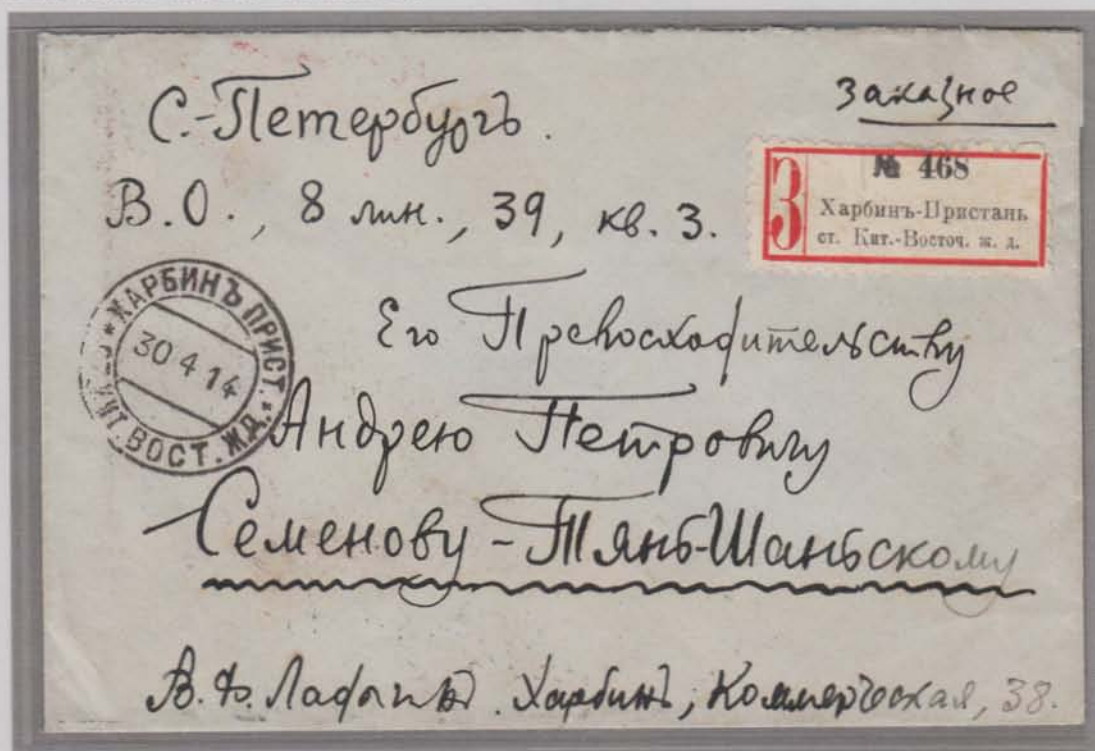 С.-Петербургъ.
Заказное
В.О., 8 лин., 39, кв. 3.
З
№ 468
Харбинъ-Пристань
ст. Кит.-Восточ. ж. д.
ХАРБИНЪ ПРИСТ.
30 4 14
КИТ. ВОСТ. Ж.Д.
Его Превосходительству
Андрею Петровичу
Семенову-Тянь-Шаньскому
В. Ф. Харбинъ, Коммерческая, 38.